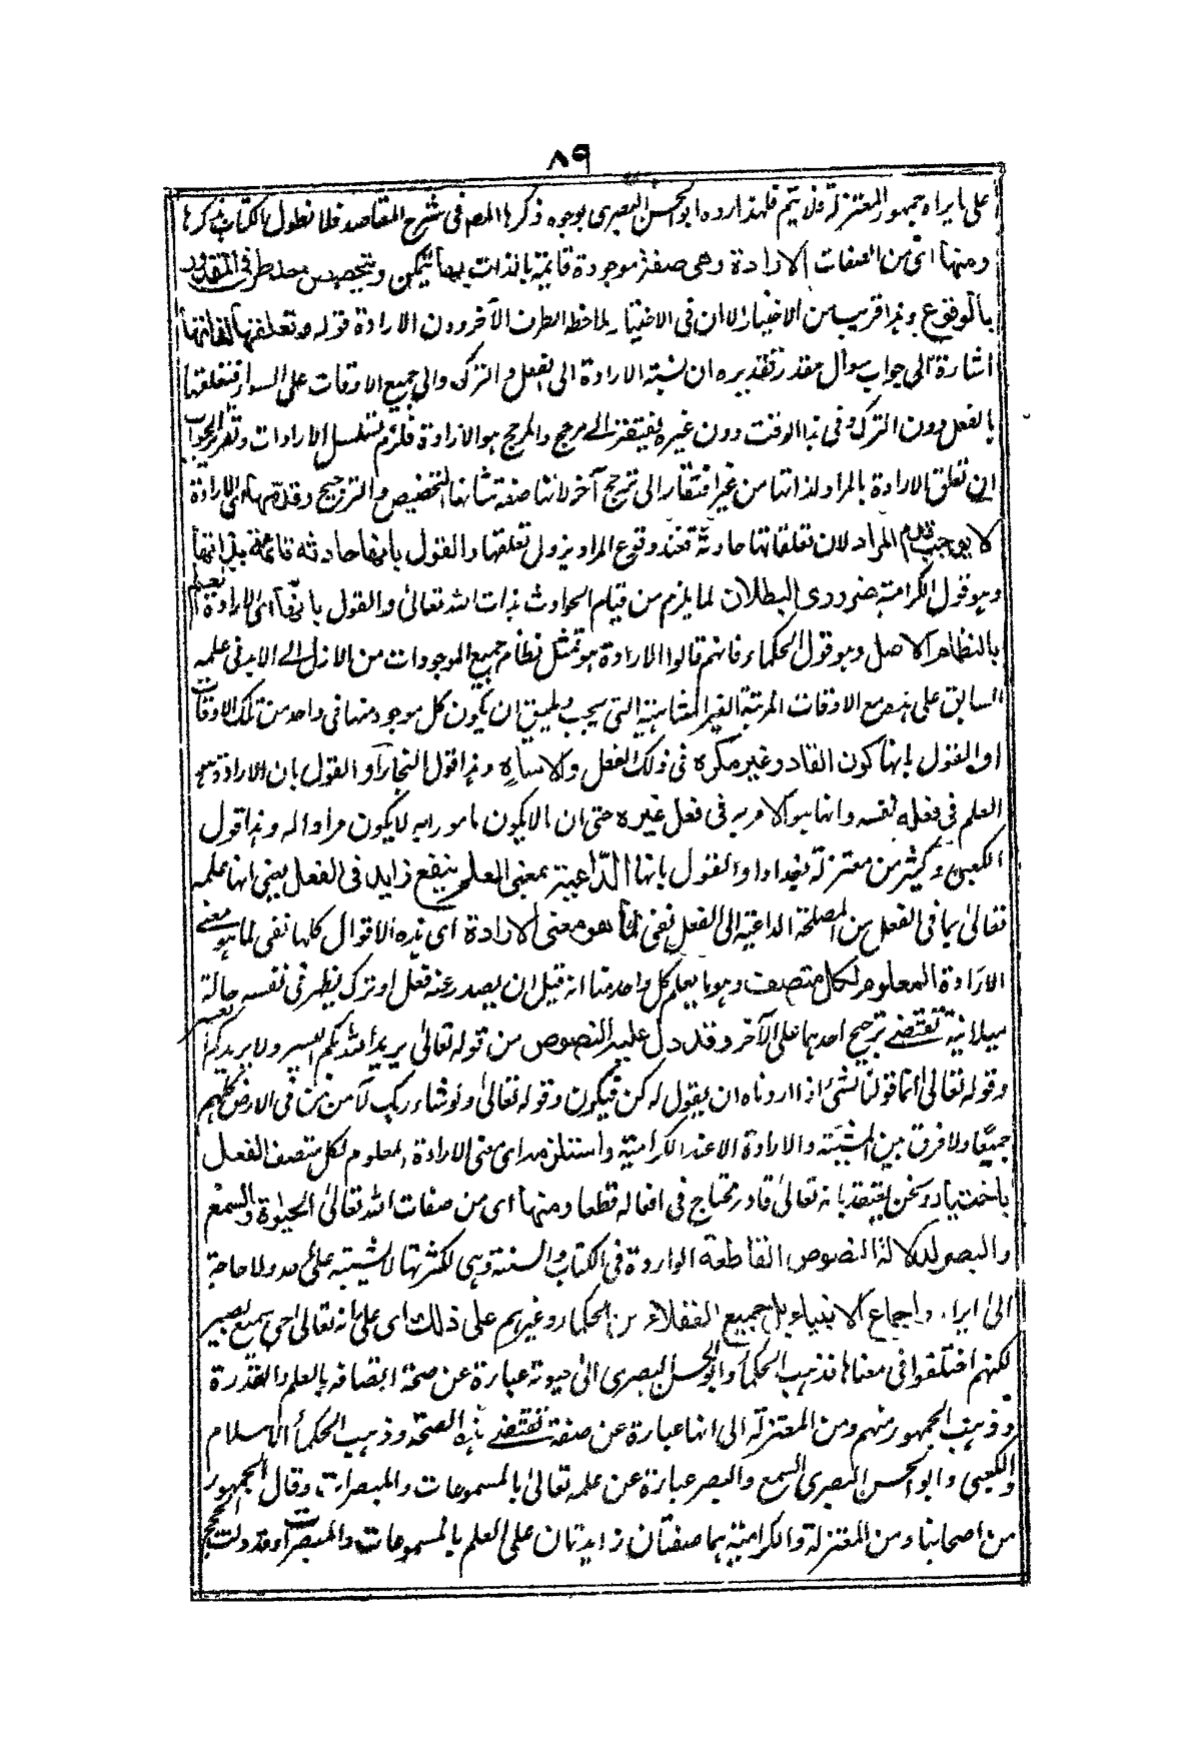 ٨٩
على ما يراه جمهور المعتزلة فلا يتم فلهذا رده ابو الحسن البصرى بوجوه ذكرها المص فى شرح المقاصد فلا نطول الكتاب بذكرها
ومنها اى من الصفات الارادة وهى صفة موجودة قائمة بالذات بها يمكن وتخصيص احد طرفى المقدور
بالوقوع وهذا قريب من الاختيار الا ان فى الاختيار ملاحظة الطرف الآخر دون الارادة قوله وتعلقها لذاتها
اشارة الى جواب سوال مقدر تقديره ان نسبة الارادة الى الفعل والترك والى جميع الاوقات على السواء فتعلقها
بالفعل دون الترك وفى هذا الوقت دون غيره يفتقر الى مرجح والمرجح هو الارادة فلزم تسلسل الارادات وتقرير الجواب
ان تعلق الارادة بالمراد لذاتها من غير افتقار الى ترجيح آخر لانها صفة شانها التخصيص والترجيح وقدمها اى الارادة
لا يوجب قدم المراد لان تعلقاتها حادثة فعند وقوع المراد يزول تعلقها والقول بانها حادثة قائمة بذاتها
وهو قول الكرامية ضرورى البطلان لما يلزم من قيام الحوادث بذات الله تعالى والقول بانها اى الارادة العلم
بالنظام الاصل وهو قول الحكماء فانهم قالوا الارادة هو تمثل نظام جميع الموجودات من الازل الى الابد فى علمه
السابق على هذه مع الاوقات المرتبة الغير المتناهية التى يجب ويليق ان يكون كل موجود منها فى واحد من تلك الاوقات
او القول بانها كون القادر غير مكره فى ذلك الفعل ولا ساه وهذا قول النجار او القول بان الارادة هو
العلم فى فعله نفسه وانها هو الامر به فى فعل غيره حتى ان ما لا يكون مامورا به لا يكون مرادا له وهذا قول
الكعبى وكثير من معتزلة بغداد او القول بانها الداعية بمعنى العلم بنفع زايد فى الفعل يعنى انها علمه
تعالى بما فى الفعل من المصلحة الداعية الى الفعل نفى لما هو معنى الارادة اى هذه الاقوال كلها نفى لما هو معنى
الارادة المعلوم لكل متصف وهو ما يعلم كل واحد منا انه قبل ان يصدر عنه فعل او ترك يظهر فى نفسه حالة
ميلانية تقتضى ترجيح احدهما على الآخر وقد دل عليه النصوص من قوله تعالى يريد الله بكم اليسر ولا يريد بكم العسر
وقوله تعالى انما قولنا لشئ اذا اردناه ان يقول له كن فيكون وقوله تعالى ولو شاء ربك لآمن من فى الارض كلهم
جميعا ولا فرق بين المشيئة والارادة الا عند الكرامية واستلزمه اى معنى الارادة المعلوم لكل متصف الفعل
باختياره ونحن نعتقد بانه تعالى قادر مختار فى افعاله قطعا ومنها اى من صفات الله تعالى الحيوة والسمع
والبصر لدلالة النصوص القاطعة الواردة فى الكتاب والسنة وهى لكثرتها لا تشتبه على احد ولا حاجة
الى ايراد واجماع الانبياء بل جميع العقلاء من الحكماء وغيرهم على ذلك اى على انه تعالى حى سميع بصير
لكنهم اختلفوا فى معناها فذهب الحكماء وابو الحسن البصرى الى حيوته عبارة عن صحة اتصافه بالعلم والقدرة
وذهب الجمهور منهم ومن المعتزلة الى انها عبارة عن صفة تقتضى هذه الصحة وذهب الحكماء الاسلام
والكعبى وابو الحسن البصرى السمع والبصر عبارة عن علمه تعالى بالمسموعات والمبصرات وقال الجمهور
من اصحابنا ومن المعتزلة والكرامية هما صفتان زايدتان على العلم بالمسموعات والمبصرات وقد دلت الحجج